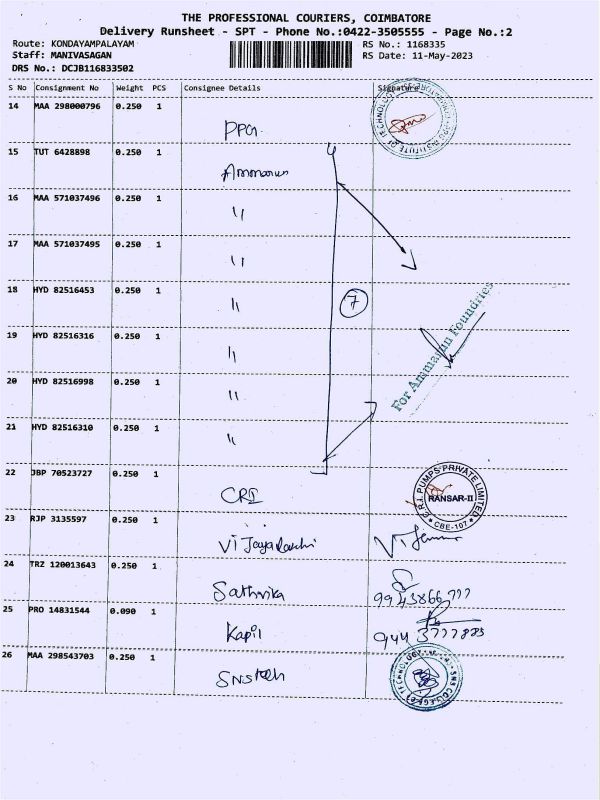 THE PROFESSIONAL COURIERS, COIMBATORE
Delivery Runsheet - SPT - Phone No.:0422-3505555 - Page No.:2
Route: KONDAYAMPALAYAM RS No.: 1168335
Staff: MANIVASAGAN RS Date: 11-May-2023
DRS No.: DCJB116833502
S No Consignment No Weight PCS Consignee Details Signature
14 MAA 298000796 0.250 1 PPG
15 TUT 6428898 0.250 1 Ammarun
16 MAA 571037496 0.250 1 "
17 MAA 571037495 0.250 1 "
18 HYD 82516453 0.250 1 " 7
19 HYD 82516316 0.250 1 "
For Ammarun Foundries
20 HYD 82516998 0.250 1 "
21 HYD 82516310 0.250 1 "
22 JBP 70523727 0.250 1 CRI C.R.I. PUMPS PRIVATE LIMITED RANSAR-II CBE-107
23 RJP 3135597 0.250 1 Vijayalakshi
24 TRZ 120013643 0.250 1 Sathvika 9943866777
25 PRO 14831544 0.090 1 Kapil
26 MAA 298543703 0.250 1 SNS Tech SNS COLLEGE OF TECHNOLOGY